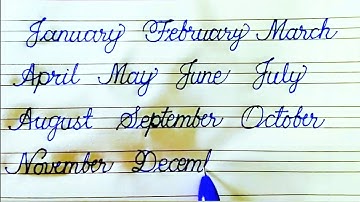 January February March
April May June July
August September October
November Decem